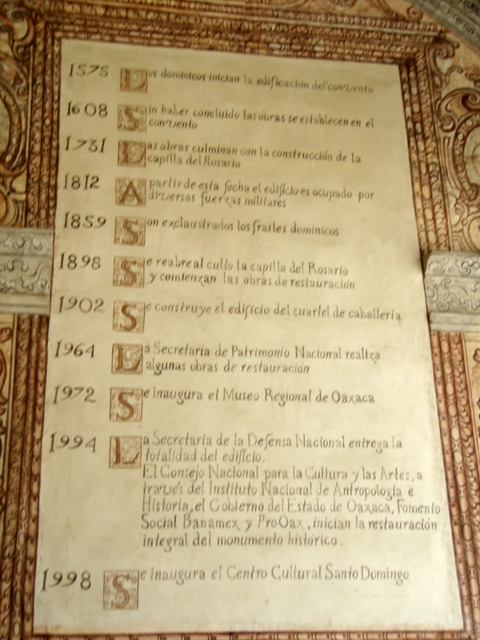 1575 Los dominicos inician la edificación del convento
1608 Sin haber concluido las obras se establecen en el
convento
1731 Las obras culminan con la construcción de la
capilla del Rosario
1812 A partir de esta fecha el edificio es ocupado por
diversas fuerzas militares
1859 Son exclaustrados los frailes dominicos
1898 Se reabre al culto la capilla del Rosario
y comienzan las obras de restauración
1902 Se construye el edificio del cuartel de caballería
1964 La Secretaría de Patrimonio Nacional realiza
algunas obras de restauración
1972 Se inaugura el Museo Regional de Oaxaca
1994 La Secretaría de la Defensa Nacional entrega la
totalidad del edificio.
El Consejo Nacional para la Cultura y las Artes, a
través del Instituto Nacional de Antropología e
Historia, el Gobierno del Estado de Oaxaca, Fomento
Social Banamex y ProOax, inician la restauración
integral del monumento histórico.
1998 Se inaugura el Centro Cultural Santo Domingo